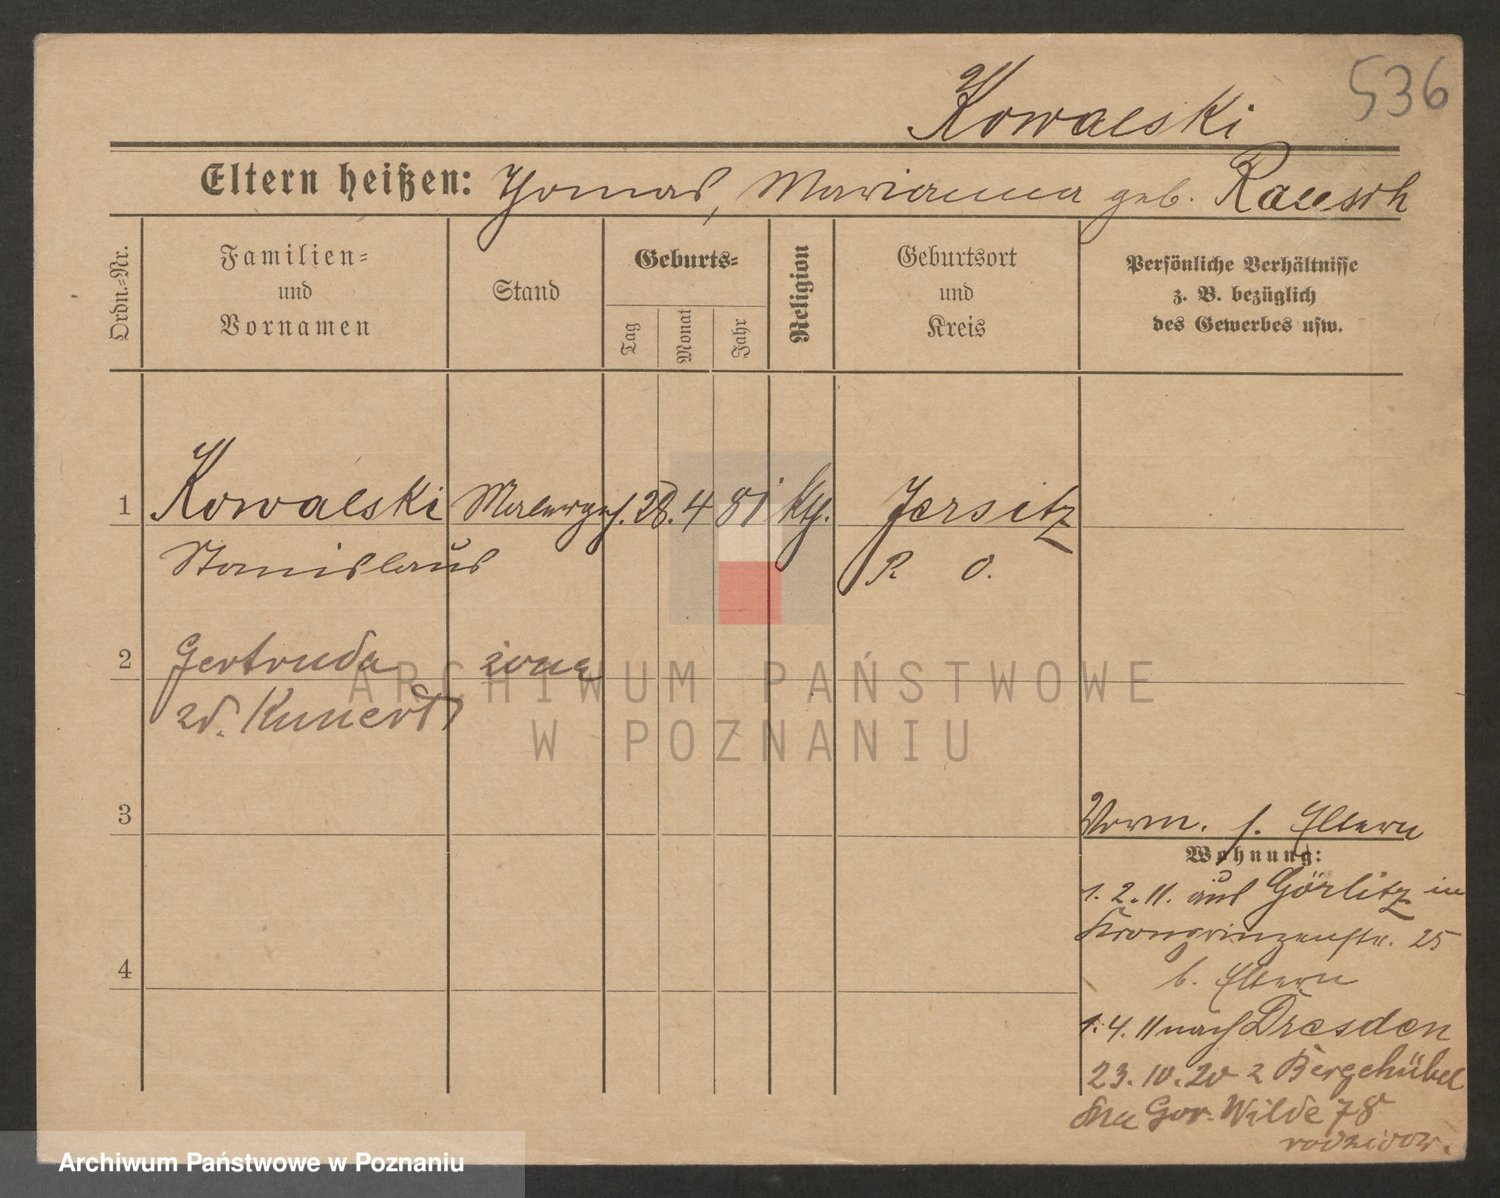 536
Kowalski
Eltern heißen: Thomas, Marianna geb. Rausch
Ordn.-Nr.
Familien-
und
Vornamen
Stand
Geburts-
Tag
Monat
Jahr
Religion
Geburtsort
und
Kreis
Persönliche Verhältnisse
z. B. bezüglich
des Gewerbes usw.
1 Kowalski Malergeh. 28. 4 81 kth. Jersitz
Stanislaus P. O.
2 Gertruda żona
zd. Kunert
ARCHIWUM PAŃSTWOWE
W POZNANIU
3
Vorm. s. Eltern
Wohnung:
1. 2. 11. aus Görlitz in
Kronprinzenstr. 25
b. Eltern
4
1. 4. 11 nach Dresden
23. 10. 20 z
na Gor. Wilde 78
rodziców.
Archiwum Państwowe w Poznaniu